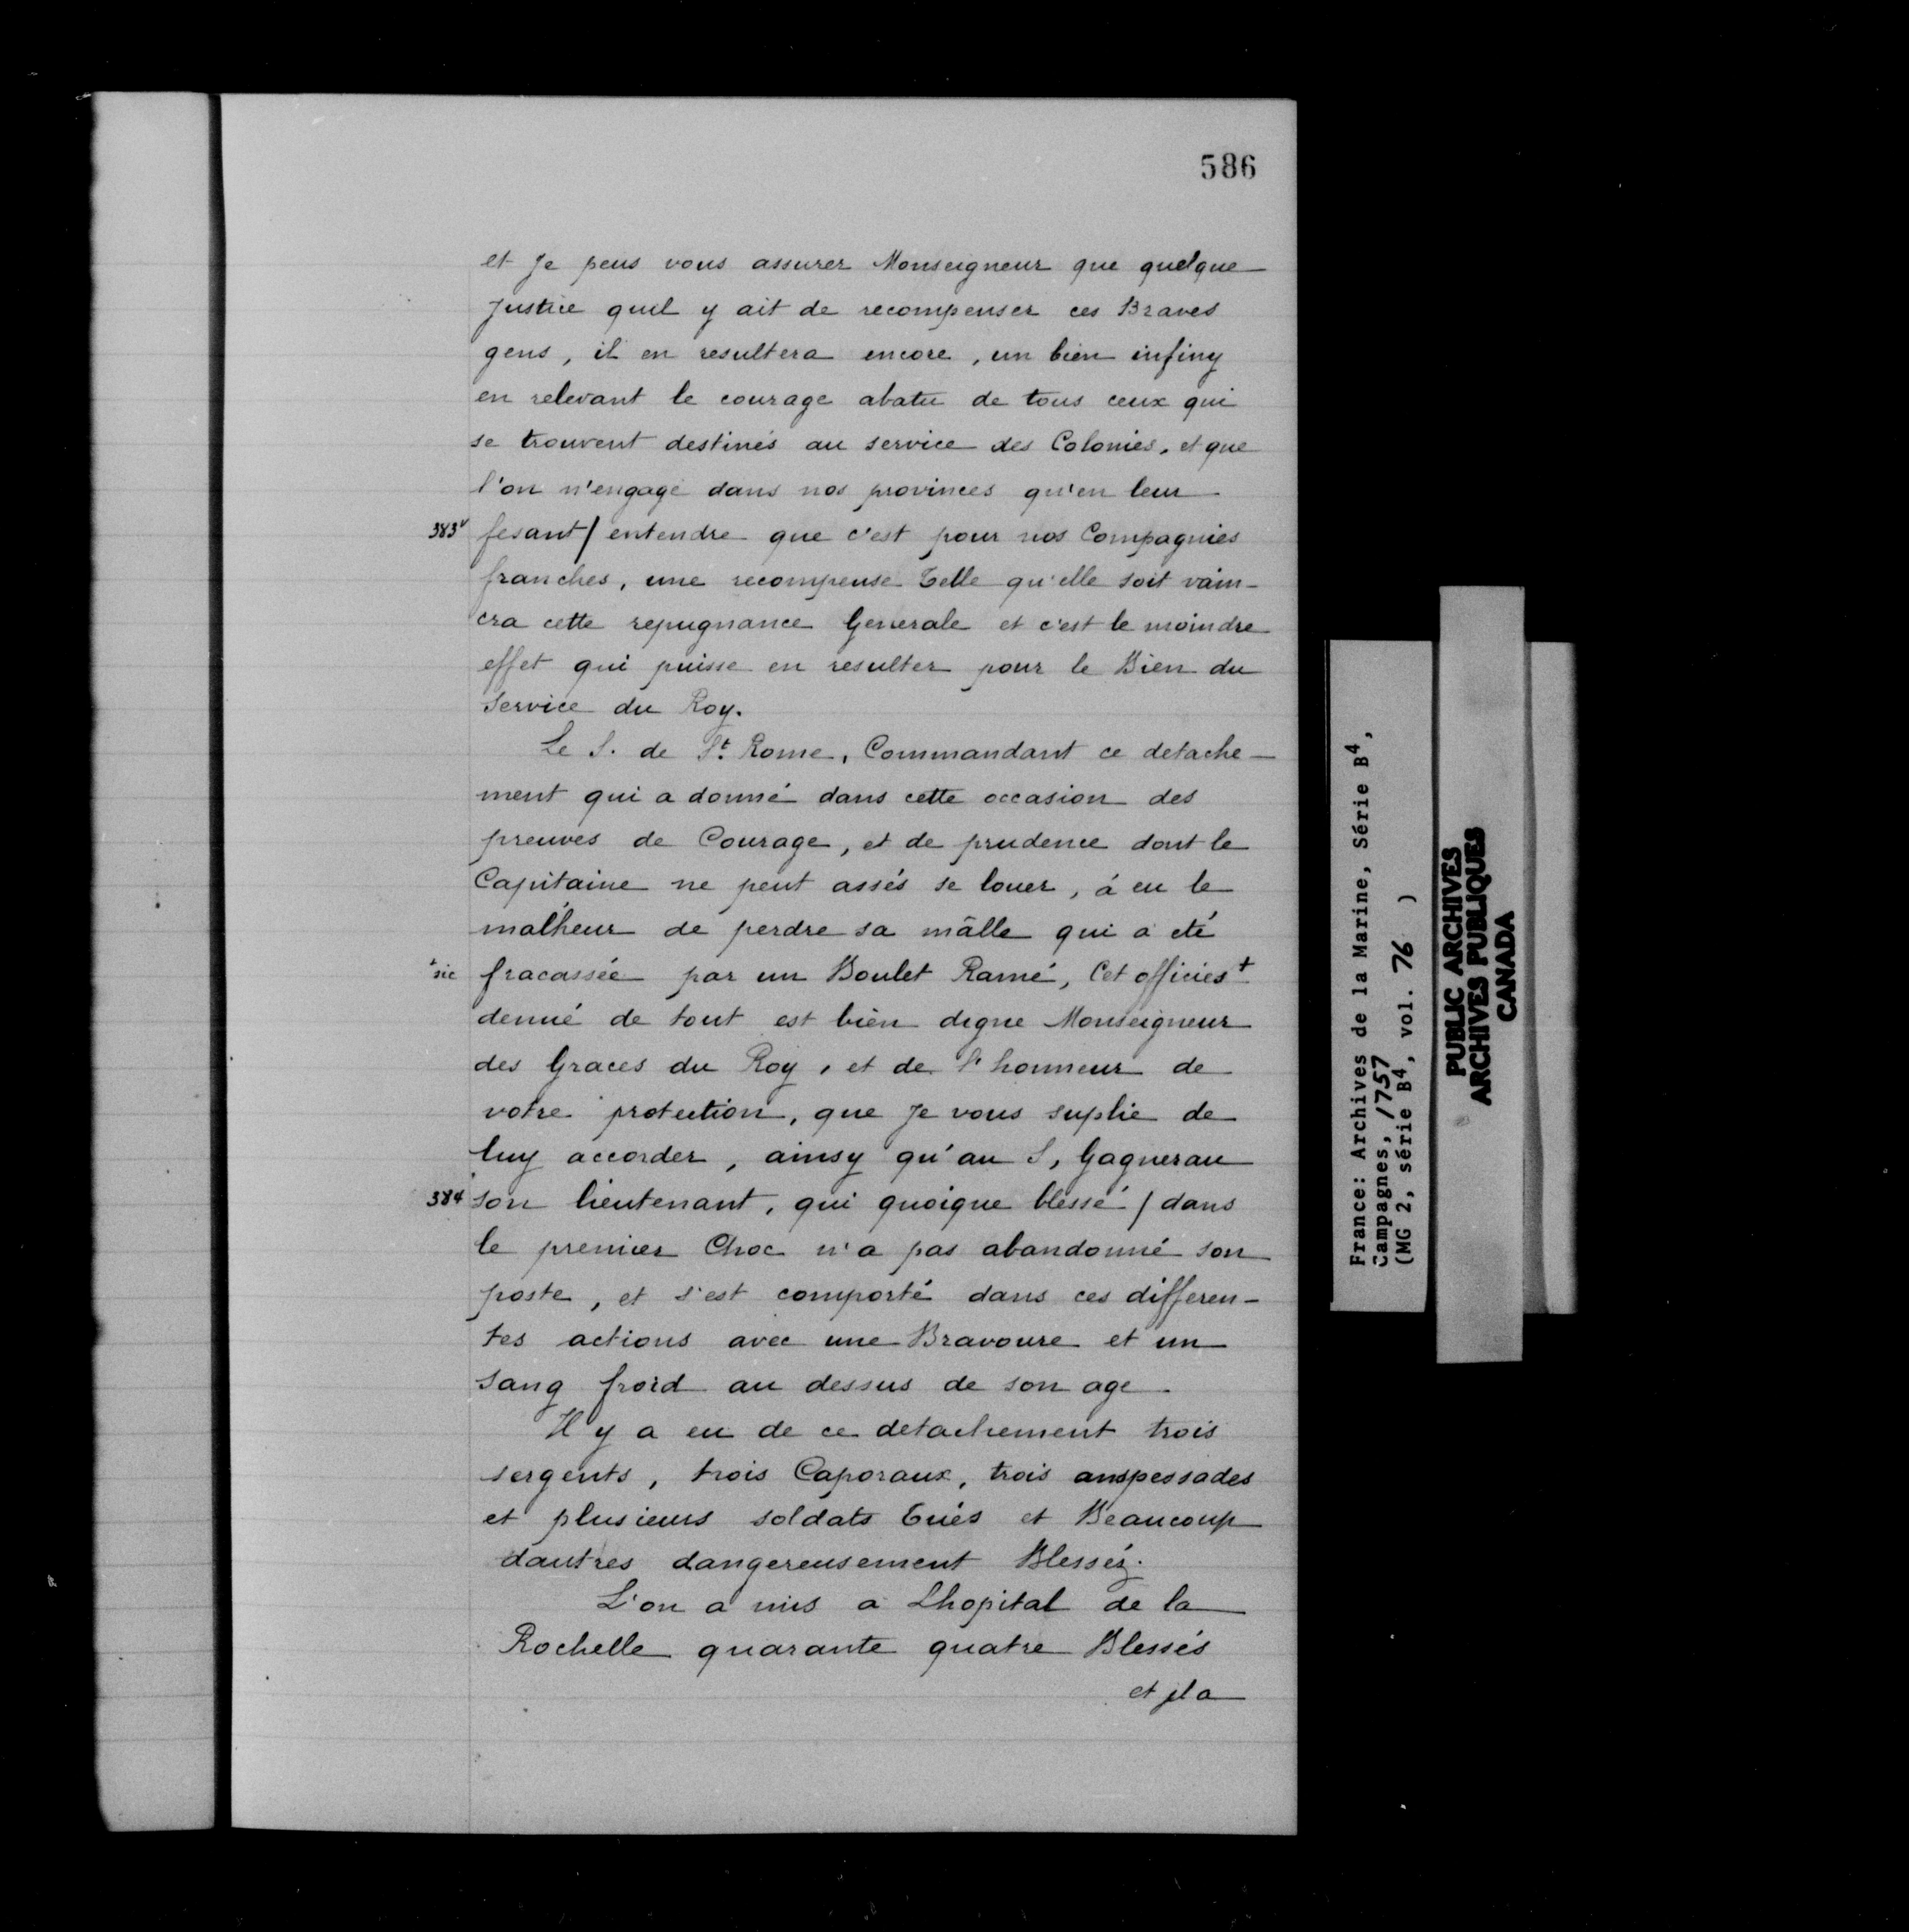 586
et je peus vous assurer Monseigneur que quelque
justice quil y ait de recompenser ces Braves
gens, il en resultera encore, un bien infiny
en relevant le courage abatu de tous ceux qui
se trouvent destinés au service des Colonies, et que
l'on n'engage dans nos provinces qu'en leur
383v fesant / entendre que c'est pour nos Compagnies
franches, une recompense Telle qu'elle soit vain-
cra cette repugnance Generale et c'est le moindre
effet qui puisse en resulter pour le Bien du
service du Roy.
Le S. de St. Rome, Commandant ce detache-
ment qui a donné dans cette occasion des
preuves de Courage, et de prudence dont le
Capitaine ne peut assés se louer, á eu le
malheur de perdre sa mâlle qui a eté
+sic fracassée par un Boulet Ramé, Cet officies+
denué de tout est bien digne Monseigneur
des Graces du Roy, et de l'honneur de
votre protection, que je vous suplie de
luy accorder, ainsy qu'au S, Gagnerau
384 son lieutenant, qui quoique blessé / dans
le premier Choc n'a pas abandonné son
poste, et s'est comporté dans ces differen-
tes actions avec une Bravoure et un
sang froid au dessus de son age.
Il y a eu de ce detachement trois
sergents, trois Caporaux, trois anspessades
et plusieurs soldats Tués et Beaucoup
dautres dangereusement Blesséz.
L'on a mis a Lhopital de la
Rochelle quarante quatre Blessés
et jl a
France: Archives de la Marine, Série B4,
Campagnes, 1757
(MG 2, série B4, vol. 76 )
PUBLIC ARCHIVES
ARCHIVES PUBLIQUES
CANADA